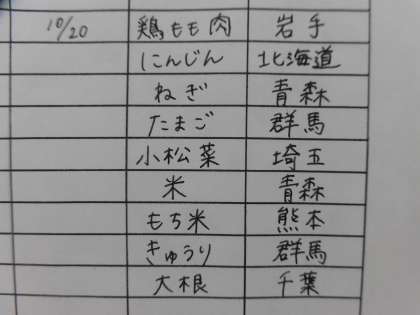 10/20 鶏もも肉 岩手
にんじん 北海道
ねぎ 青森
たまご 群馬
小松菜 埼玉
米 青森
もち米 熊本
きゅうり 群馬
大根 千葉